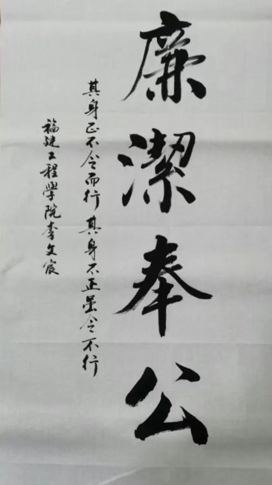 廉潔奉公
其身正不令而行其身不正虽令不行
福建工程學院李文宸